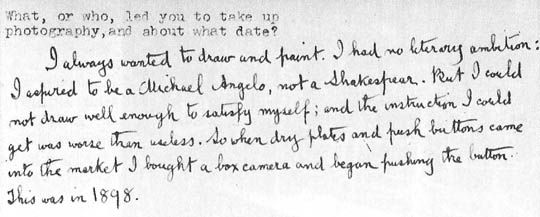 What, or who, led you to take up
photography,and about what date?
I always wanted to draw and paint. I had no literary ambition:
I aspired to be a Michael Angelo, not a Shakespear. But I could
not draw well enough to satisfy myself; and the instruction I could
get was worse than useless. So when dry plates and push buttons came
into the market I bought a box camera and began pushing the button.
This was in 1898.